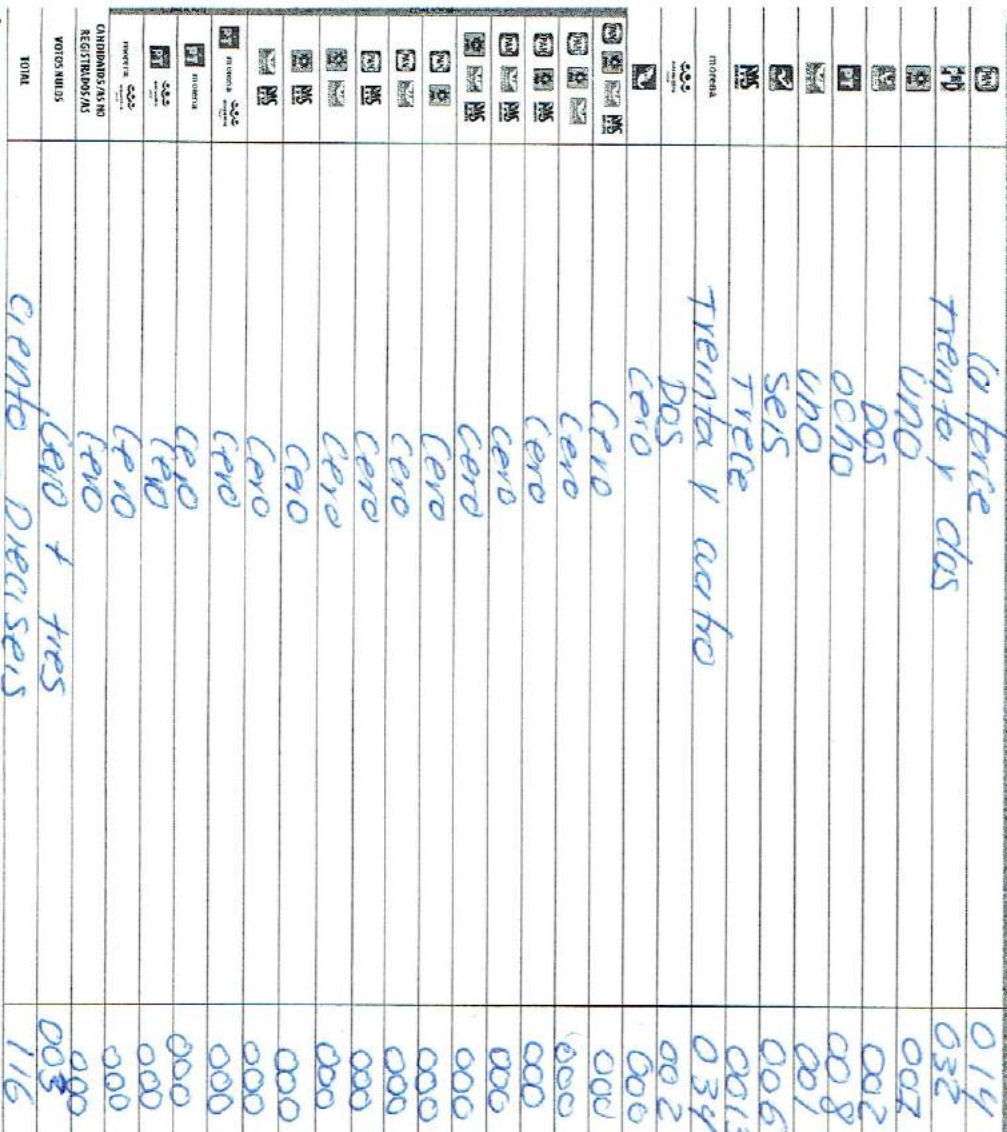 PAN catorce 014
PRI treinta y dos 032
uno 001
Dos 002
PT ocho 008
uno 001
seis 006
NAS Trece 0013
morena Treinta y cuatro 034
Dos 002
cero 000
PAN NAS cero 000
PAN cero 000
PAN NAS cero 000
PAN NAS cero 000
NAS cero 000
PAN cero 000
PAN cero 000
PAN NAS cero 000
cero 000
NAS cero 000
NAS cero 000
PT morena cero 000
PT morena cero 000
PT cero 000
morena cero 000
CANDIDATOS/AS NO REGISTRADOS/AS cero 000
VOTOS NULOS cero + tres 003
TOTAL ciento Dieciseis 116